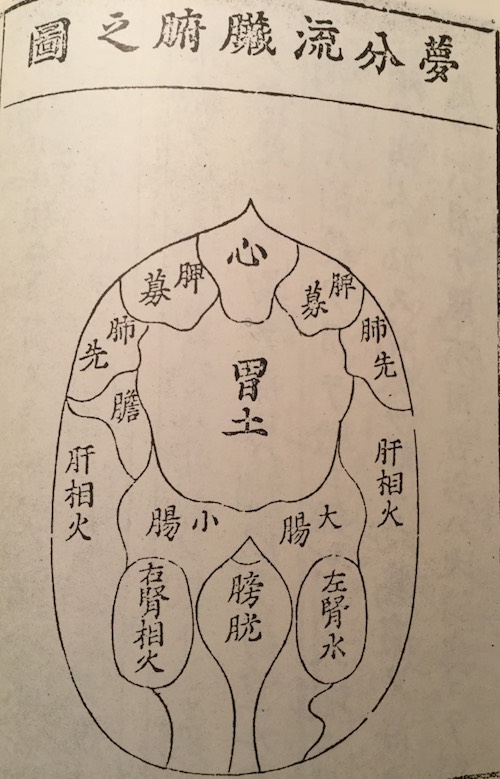 夢分流臟腑之圖
心
脾募
脾募
肺先
肺先
膽
胃土
肝相火
肝相火
大腸
小腸
左腎水
膀胱
右腎相火